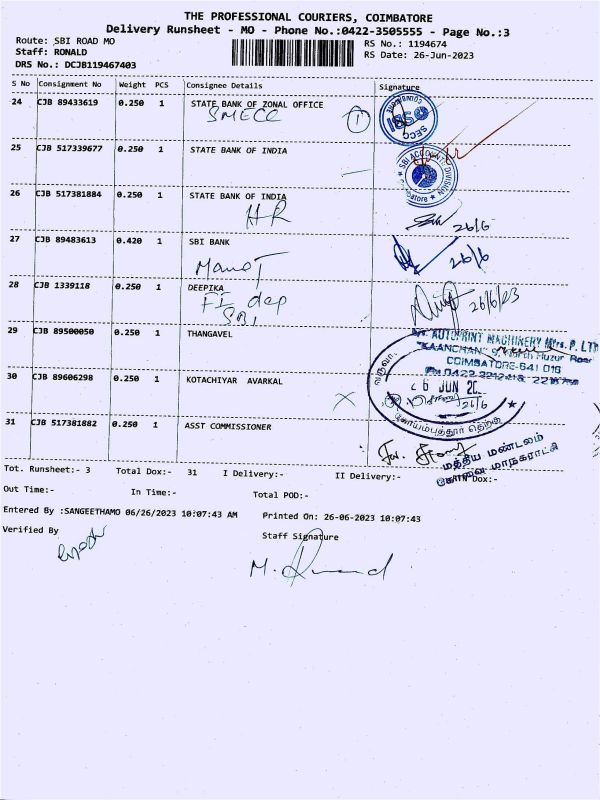 THE PROFESSIONAL COURIERS, COIMBATORE
Delivery Runsheet - MO - Phone No.:0422-3505555 - Page No.:3
Route: SBI ROAD MO
RS No.: 1194674
Staff: RONALD
RS Date: 26-Jun-2023
DRS No.: DCJB119467403
S No Consignment No Weight PCS Consignee Details Signature
24 CJB 89433619 0.250 1 STATE BANK OF ZONAL OFFICE
SMECC 1
SBI
SECC
25 CJB 517339677 0.250 1 STATE BANK OF INDIA
SBI ACCOUNT DIVISION
26 CJB 517381884 0.250 1 STATE BANK OF INDIA
HR 26/6
27 CJB 89483613 0.420 1 SBI BANK
26/6
28 CJB 1339118 0.250 1 DEEPIKA
26/6/23
SBI
29 CJB 89500050 0.250 1 THANGAVEL
AUTOPRINT MACHINERY Mfrs. P. LTD
"KAANCHAN" 9, North Huzur Road
COIMBATORE-641 018
30 CJB 89606298 0.250 1 KOTACHIYAR AVARKAL
26 JUN
26/6
31 CJB 517381882 0.250 1 ASST COMMISSIONER
கோயம்புத்தூர் தெற்கு
மத்திய மண்டலம்
கோவை மாநகராட்சி
Tot. Runsheet:- 3 Total Dox:- 31 I Delivery:- II Delivery:- Dox:-
Out Time:- In Time:- Total POD:-
Entered By :SANGEETHAMO 06/26/2023 10:07:43 AM Printed On: 26-06-2023 10:07:43
Verified By Staff Signature